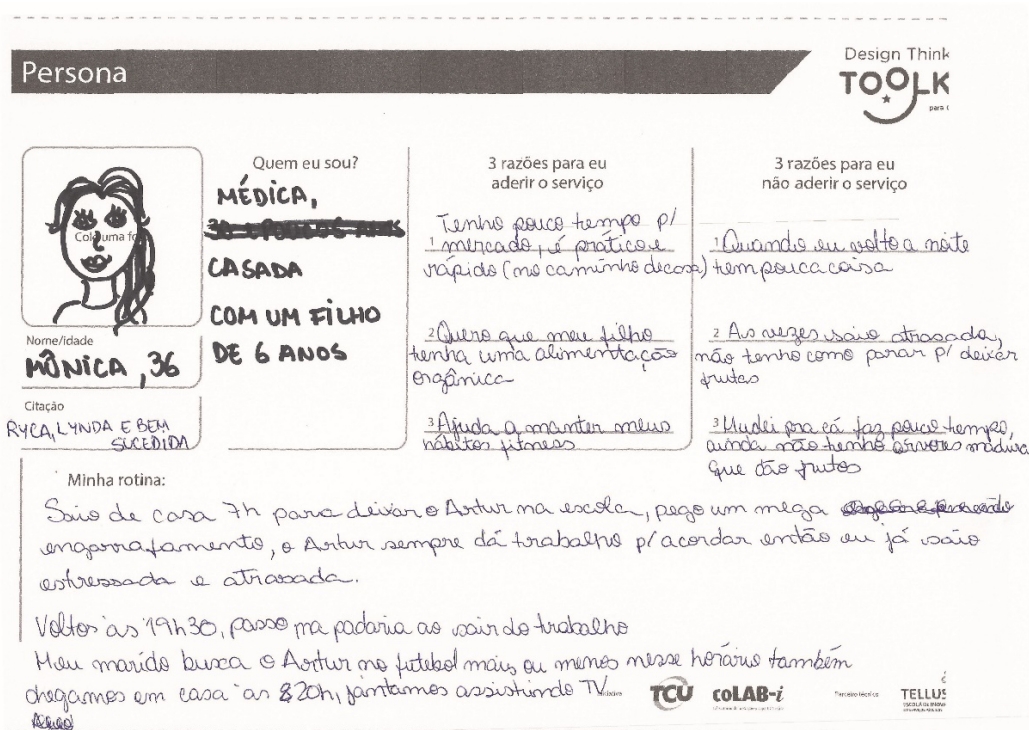 Persona
Design Think
TOOLK
para
Quem eu sou?
MÉDICA,
CASADA
COM UM FILHO
DE 6 ANOS
Cole uma fo
Nome/idade
MÔNICA, 36
Citação
RYCA, LYNDA E BEM
SUCEDIDA
3 razões para eu
aderir o serviço
Tenho pouco tempo p/
1 mercado, é prático e
rápido (no caminho de casa)
2 Quero que meu filho
tenha uma alimentação
orgânica
3 Ajuda a manter meus
hábitos fitness
3 razões para eu
não aderir o serviço
1 Quando eu volto a noite
tem pouca coisa
2 As vezes saio atrasada,
não tenho como parar p/ deixar
frutas
3 Mudei pra cá faz pouco tempo,
ainda não tenho árvores madura
que dão frutos
Minha rotina:
Saio de casa 7h para deixar o Artur na escola, pego um mega
engarrafamento, o Artur sempre dá trabalho p/ acordar então eu já saio
estressada e atrasada.
Voltos às 19h30, passo na padaria ao sair do trabalho
Meu marido busca o Artur no futebol mais ou menos nesse horário também
chegamos em casa às 20h, jantamos assistindo TV
TCU
coLAB-i
TELLUS